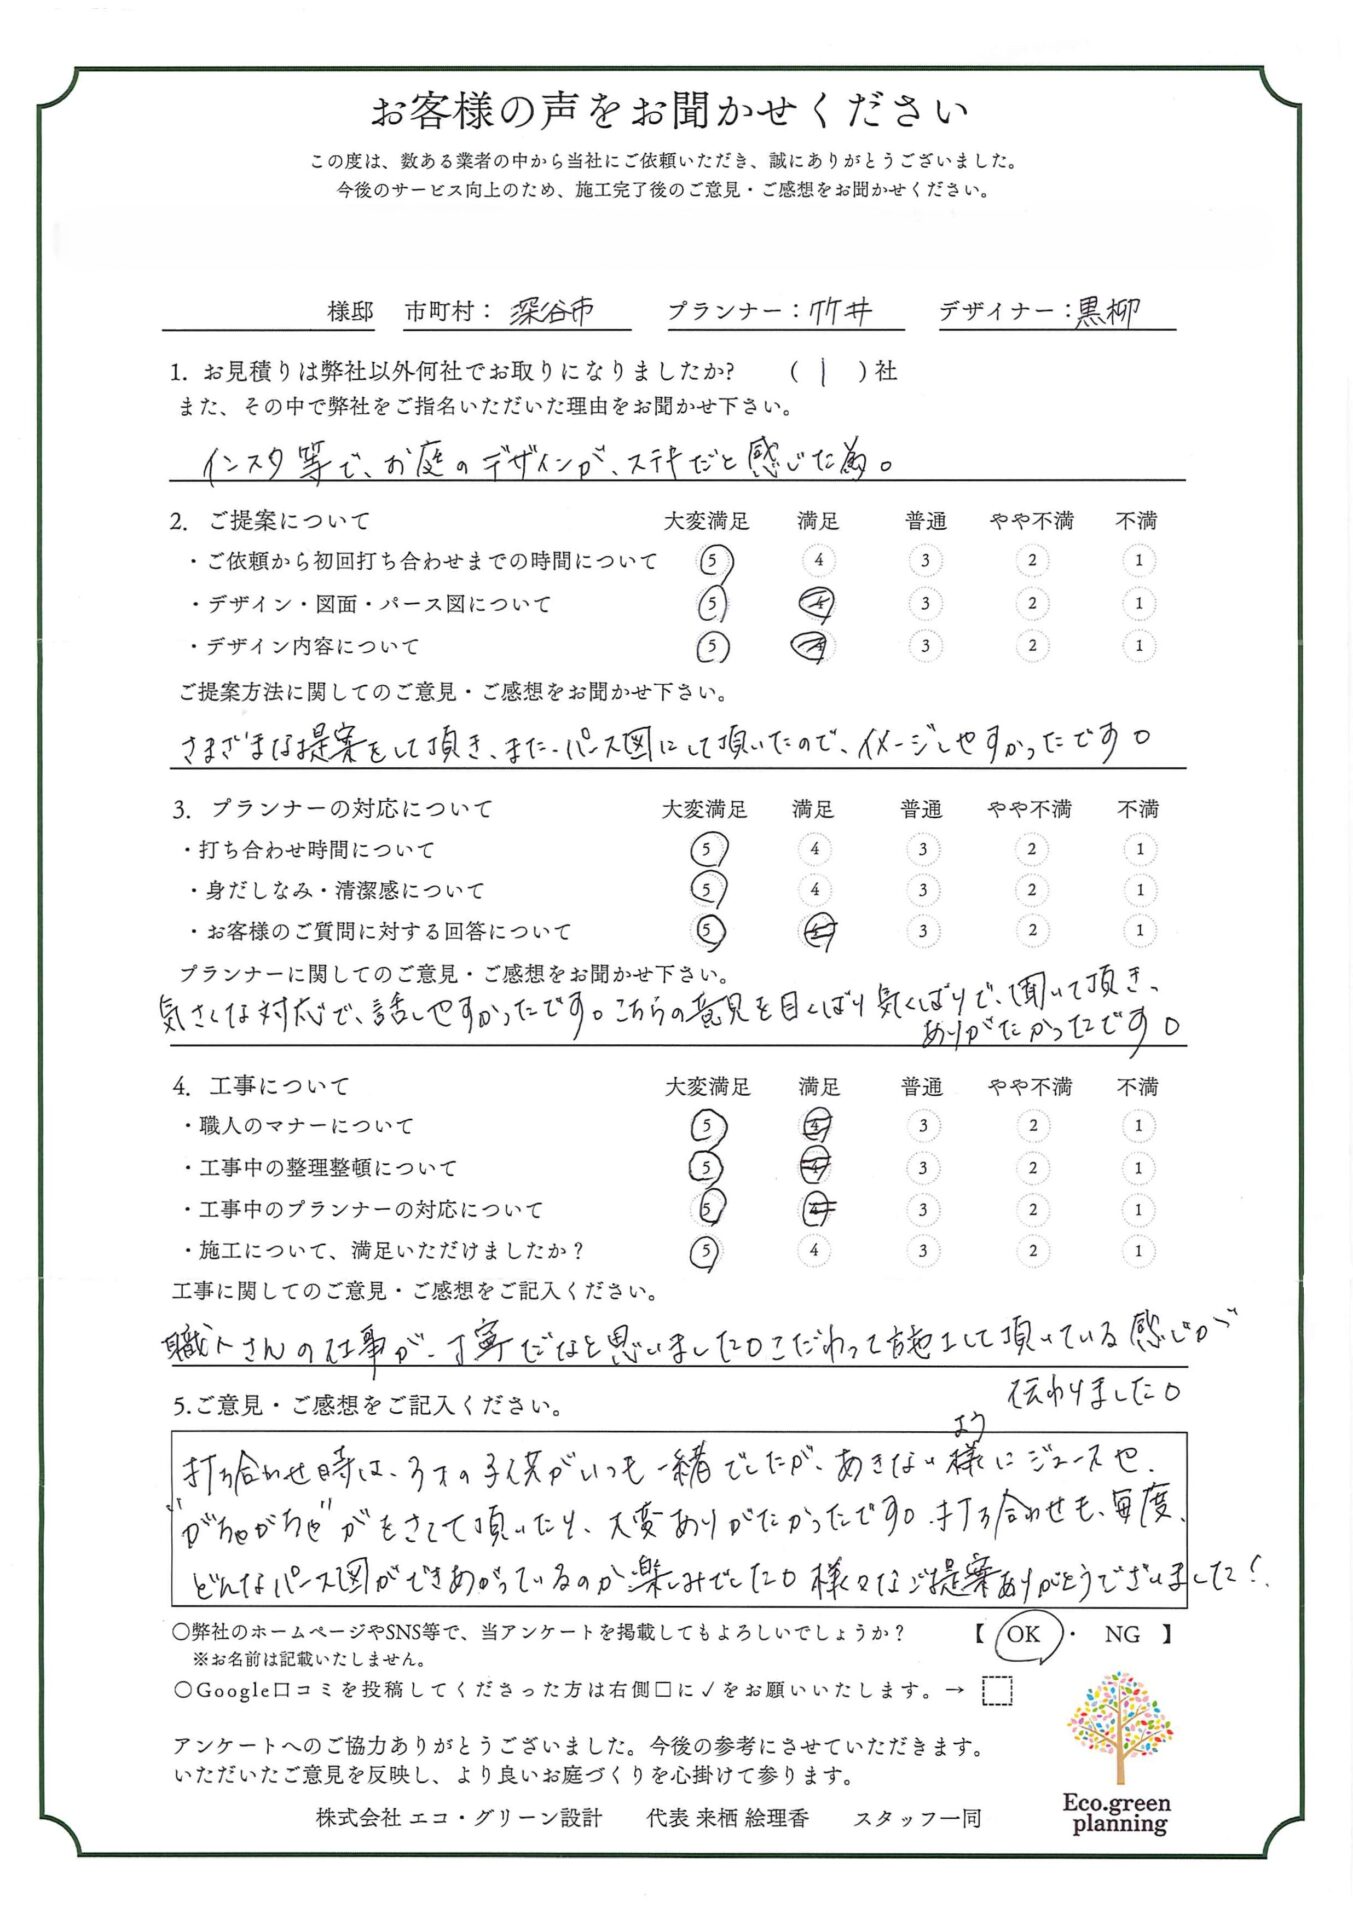 お客様の声をお聞かせください
この度は、数ある業者の中から当社にご依頼いただき、誠にありがとうございました。
今後のサービス向上のため、施工完了後のご意見・ご感想をお聞かせください。
様邸 市町村：深谷市 プランナー：竹井 デザイナー：黒柳
1. お見積りは弊社以外何社でお取りになりましたか? ( 1 )社
また、その中で弊社をご指名いただいた理由をお聞かせ下さい。
インスタ等で、お庭のデザインが、ステキだと感じた為。
2. ご提案について 大変満足 満足 普通 やや不満 不満
・ご依頼から初回打ち合わせまでの時間について 5 4 3 2 1
・デザイン・図面・パース図について 5 4 3 2 1
・デザイン内容について 5 4 3 2 1
ご提案方法に関してのご意見・ご感想をお聞かせ下さい。
さまざまな提案をして頂き、また、パース図にして頂いたので、イメージしやすかったです。
3. プランナーの対応について 大変満足 満足 普通 やや不満 不満
・打ち合わせ時間について 5 4 3 2 1
・身だしなみ・清潔感について 5 4 3 2 1
・お客様のご質問に対する回答について 5 4 3 2 1
プランナーに関してのご意見・ご感想をお聞かせ下さい。
気さくな対応で、話しやすかったです。こちらの意見を目くばり気くばりで、聞いて頂き、
ありがたかったです。
4. 工事について 大変満足 満足 普通 やや不満 不満
・職人のマナーについて 5 4 3 2 1
・工事中の整理整頓について 5 4 3 2 1
・工事中のプランナーの対応について 5 4 3 2 1
・施工について、満足いただけましたか？ 5 4 3 2 1
工事に関してのご意見・ご感想をご記入ください。
職人さんの仕事が、丁寧だなと思いました。こだわって施工して頂いている感じが
伝わりました。
5.ご意見・ご感想をご記入ください。
よう
打ち合わせ時は、3才の子供がいつも一緒でしたが、あきない様にジュースや、
"がちゃがちゃ"がをさせて頂いたり、大変ありがたかったです。打ち合わせも、毎度、
どんなパース図ができあがっているのか楽しみでした。様々なご提案ありがとうございました！
〇弊社のホームページやSNS等で、当アンケートを掲載してもよろしいでしょうか？ 【 OK ・ NG 】
※お名前は記載いたしません。
〇Google口コミを投稿してくださった方は右側□に✓をお願いいたします。→
アンケートへのご協力ありがとうございました。今後の参考にさせていただきます。
いただいたご意見を反映し、より良いお庭づくりを心掛けて参ります。
株式会社 エコ・グリーン設計 代表 来栖 絵理香 スタッフ一同
Eco.green
planning